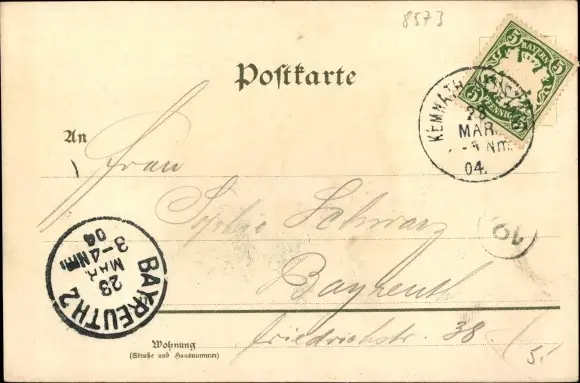 8573
Postkarte
BAYERN
5 5
5 5
PFENNIG
KEMNATH
28
MAR.
Nm.
04.
An
Frau
Sophie Schwarz
Bayreuth
Friedrichstr. 38.
BAYREUTH 2
28
MAR
3-4 Nm.
04
10
Wohnung
(Straße und Hausnummer)
5.